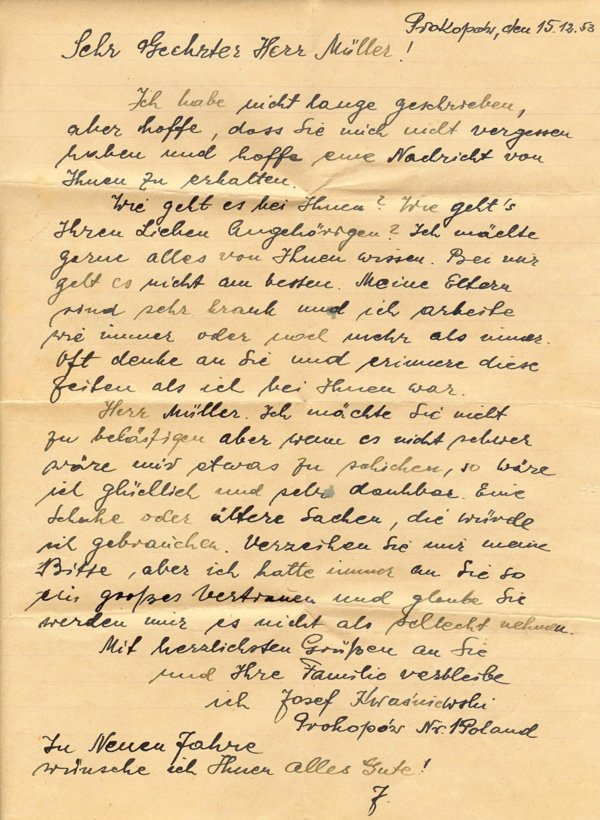 Prokopów, den 15.12.53
Sehr Geehrter Herr Müller!
Ich habe nicht lange geschrieben,
aber hoffe, dass Sie mich nicht vergessen
haben und hoffe eine Nachricht von
Ihnen zu erhalten.
Wie geht es bei Ihnen? Wie geht's
Ihren Lieben Angehörigen? Ich möchte
gerne alles von Ihnen wissen. Bei mir
geht es nicht am besten. Meine Eltern
sind sehr krank und ich arbeite
wie immer oder noch mehr als immer.
Oft denke an Sie und erinnere diese
Zeiten als ich bei Ihnen war.
Herr Müller. Ich möchte Sie nicht
zu belästigen aber wenn es nicht schwer
wäre mir etwas zu schicken, so wäre
ich glücklich und sehr dankbar. Eine
Schuhe oder ältere Sachen, die würde
ich gebrauchen. Verzeihen Sie mir meine
Bitte, aber ich hatte immer an Sie so
ein großes Vertrauen und glaube Sie
werden mir es nicht als schlecht nehmen.
Mit herzlichsten Grüßen an Sie
und Ihre Familie verbleibe
ich Josef Kwaśniewski
Prokopów Nr. 1 Poland
In Neuen Jahre
wünsche ich Ihnen alles Gute!
J.